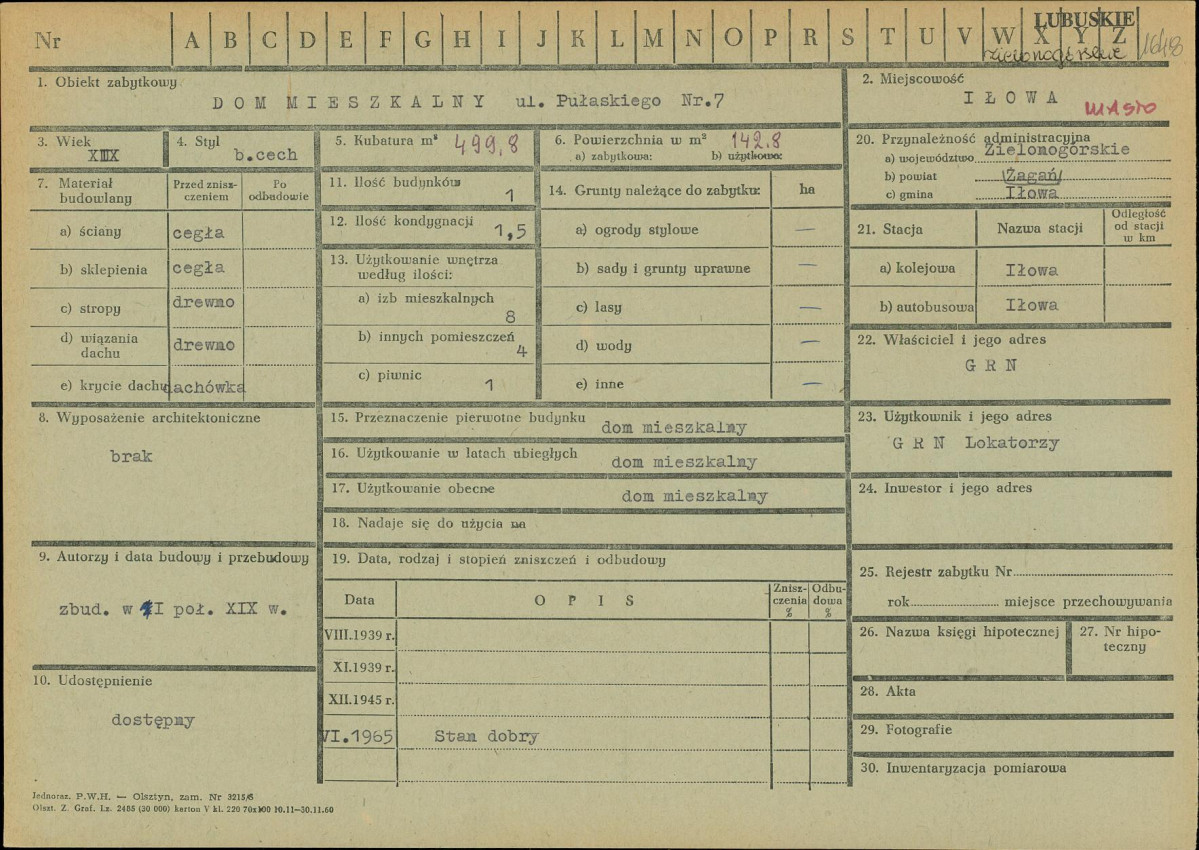 Nr A B C D E F G H I J K L M N O P R S T U V W X Y Z
LUBUSKIE
zielonogórskie
1648
1. Obiekt zabytkowy
DOM MIESZKALNY ul. Pułaskiego Nr.7
2. Miejscowość
IŁOWA
MIASTO
3. Wiek
4. Styl
b.cech
5. Kubatura m³ 499,8
6. Powierzchnia w m² 142.8
a) zabytkowa: b) użytkowa:
20. Przynależność administracyjna
a) województwo Zielonogórskie
b) powiat Żagań
c) gmina Iłowa
7. Materiał budowlany
Przed zniszczeniem
Po odbudowie
a) ściany cegła
b) sklepienia cegła
c) stropy drewno
d) wiązania dachu drewno
e) krycie dachu dachówka
11. Ilość budynków 1
12. Ilość kondygnacji 1,5
13. Użytkowanie wnętrza
według ilości:
a) izb mieszkalnych
8
b) innych pomieszczeń
4
c) piwnic
1
14. Grunty należące do zabytku: ha
a) ogrody stylowe —
b) sady i grunty uprawne —
c) lasy —
d) wody —
e) inne —
21. Stacja
Nazwa stacji
Odległość
od stacji
w km
a) kolejowa Iłowa
b) autobusowa Iłowa
22. Właściciel i jego adres
G R N
8. Wyposażenie architektoniczne
brak
15. Przeznaczenie pierwotne budynku dom mieszkalny
16. Użytkowanie w latach ubiegłych dom mieszkalny
17. Użytkowanie obecne dom mieszkalny
18. Nadaje się do użycia na
23. Użytkownik i jego adres
G R N Lokatorzy
24. Inwestor i jego adres
9. Autorzy i data budowy i przebudowy
zbud. w II poł. XIX w.
19. Data, rodzaj i stopień zniszczeń i odbudowy
Data
O P I S
Zniszczenia %
Odbudowa %
VIII.1939 r.
XI.1939 r.
XII.1945 r.
VI.1965 Stan dobry
10. Udostępnienie
dostępny
25. Rejestr zabytku Nr
rok miejsce przechowywania
26. Nazwa księgi hipotecznej
27. Nr hipoteczny
28. Akta
29. Fotografie
30. Inwentaryzacja pomiarowa
Jednoraz. P.W.H. — Olsztyn, zam. Nr 3215/8
Olszt. Z. Graf. Lz. 2485 (30 000) karton V kl. 220 70x100 10.11—30.11.60